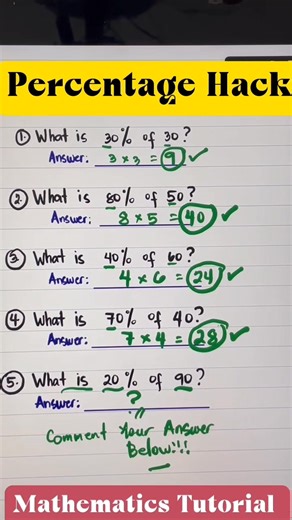 Percentage Hack
1. What is 30% of 30?
Answer: 3 × 3 = 9 ✓
2. What is 80% of 50?
Answer: 8 × 5 = 40 ✓
3 What is 40% of 60?
Answer: 4 × 6 = 24 ✓
4 What is 70% of 40?
Answer: 7 × 4 = 28 ✓
5. What is 20% of 90?
Answer: ?
Comment Your Answer
Below!!!
Mathematics Tutorial